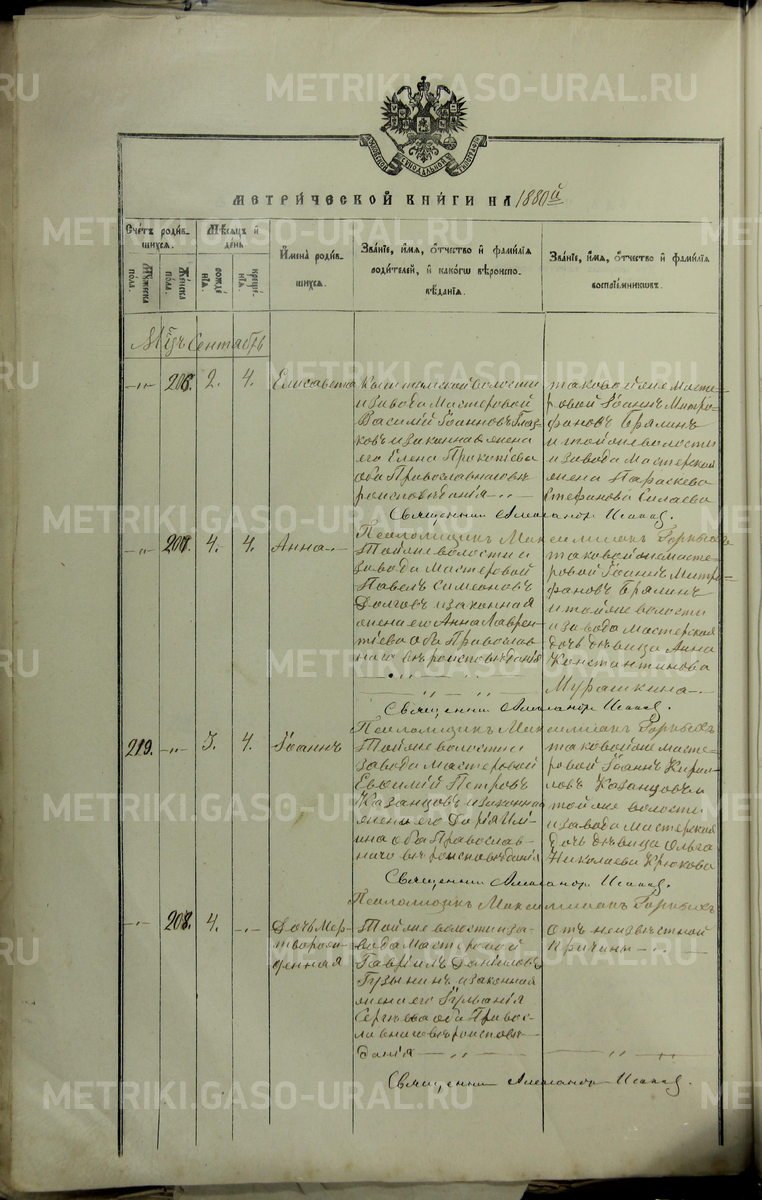 METRIKI.GASO-URAL.RU
МЕТРИ́ЧЕСКОЙ КНИ́ГИ НА 1880й
Сче́тъ роди́в-
шихся.
Мѣ́сяцъ и҆
день
И҆мена̀ роди́в-
шихся.
Зва́нїе, и҆́мя, ѻ҆́тчество и҆ фами́лїя
роди́телей, и҆ како́гѡ вѣроиспо-
вѣ́данїя.
Зва́нїе, и҆́мя, ѻ҆́тчество и҆ фами́лїя
воспрїе́мникѡвъ.
Му́жеска
по́ла.
Же́нска
по́ла.
рожде́-
нїя.
креще́-
нїя.
Мцъ Сентябрь
—„— 206. 2. 4. Елисавета
Кыштымской волости
и завода Мастеровой
Василій Іоанновъ Глаз-
ковъ и законная жена
его Елена Прокопіева
оба Православнаго вѣ-
роисповѣданія —„—
таковой же масте-
ровой Іоаннъ Митро-
фановъ Брялинъ
и той же волости
и завода мастерская
жена Параскева
Стефанова Силаева
Священникъ Александръ Исаковъ.
Псаломщикъ Максимиліанъ Горныхъ
—„— 207. 4. 4. Анна —
Той же волости и
завода мастеровой
Павелъ Симеоновъ
Долговъ и законная
жена его Анна Лаврен-
тіева оба Православ-
наго вѣроисповѣданія
таковой же масте-
ровой Іоаннъ Митро-
фановъ Брялинъ
и той же волости
и завода мастерская
дочь дѣвица Анна
Константинова
Мурашкина —
Священникъ Александръ Исаковъ.
Псаломщикъ Максимиліанъ Горныхъ
219. —„— 3. 4. Іоаннъ
Той же волости и
завода мастеровой
Евѳимій Петровъ
Казанцовъ и законная
жена его Дарія Иль-
ина оба Православ-
наго вѣроисповѣданія
таковой же масте-
ровой Іоаннъ Кирил-
ловъ Казанцовъ и
той же волости
и завода мастерская
дочь дѣвица Ольга
Николаева Крюкова
Священникъ Александръ Исаковъ.
Псаломщикъ Максимиліанъ Горныхъ
—„— 208. 4. —„— Дочь Мер-
творож-
денная
Той же волости и за-
вода мастеровой
Гавріилъ Даніиловъ
Гузынинъ и законная
жена его Іуліанія
Сергѣева оба Право-
славнаго вѣроисповѣ-
данія — „ —
отъ неизвѣстной
причины —
Священникъ Александръ Исаковъ.